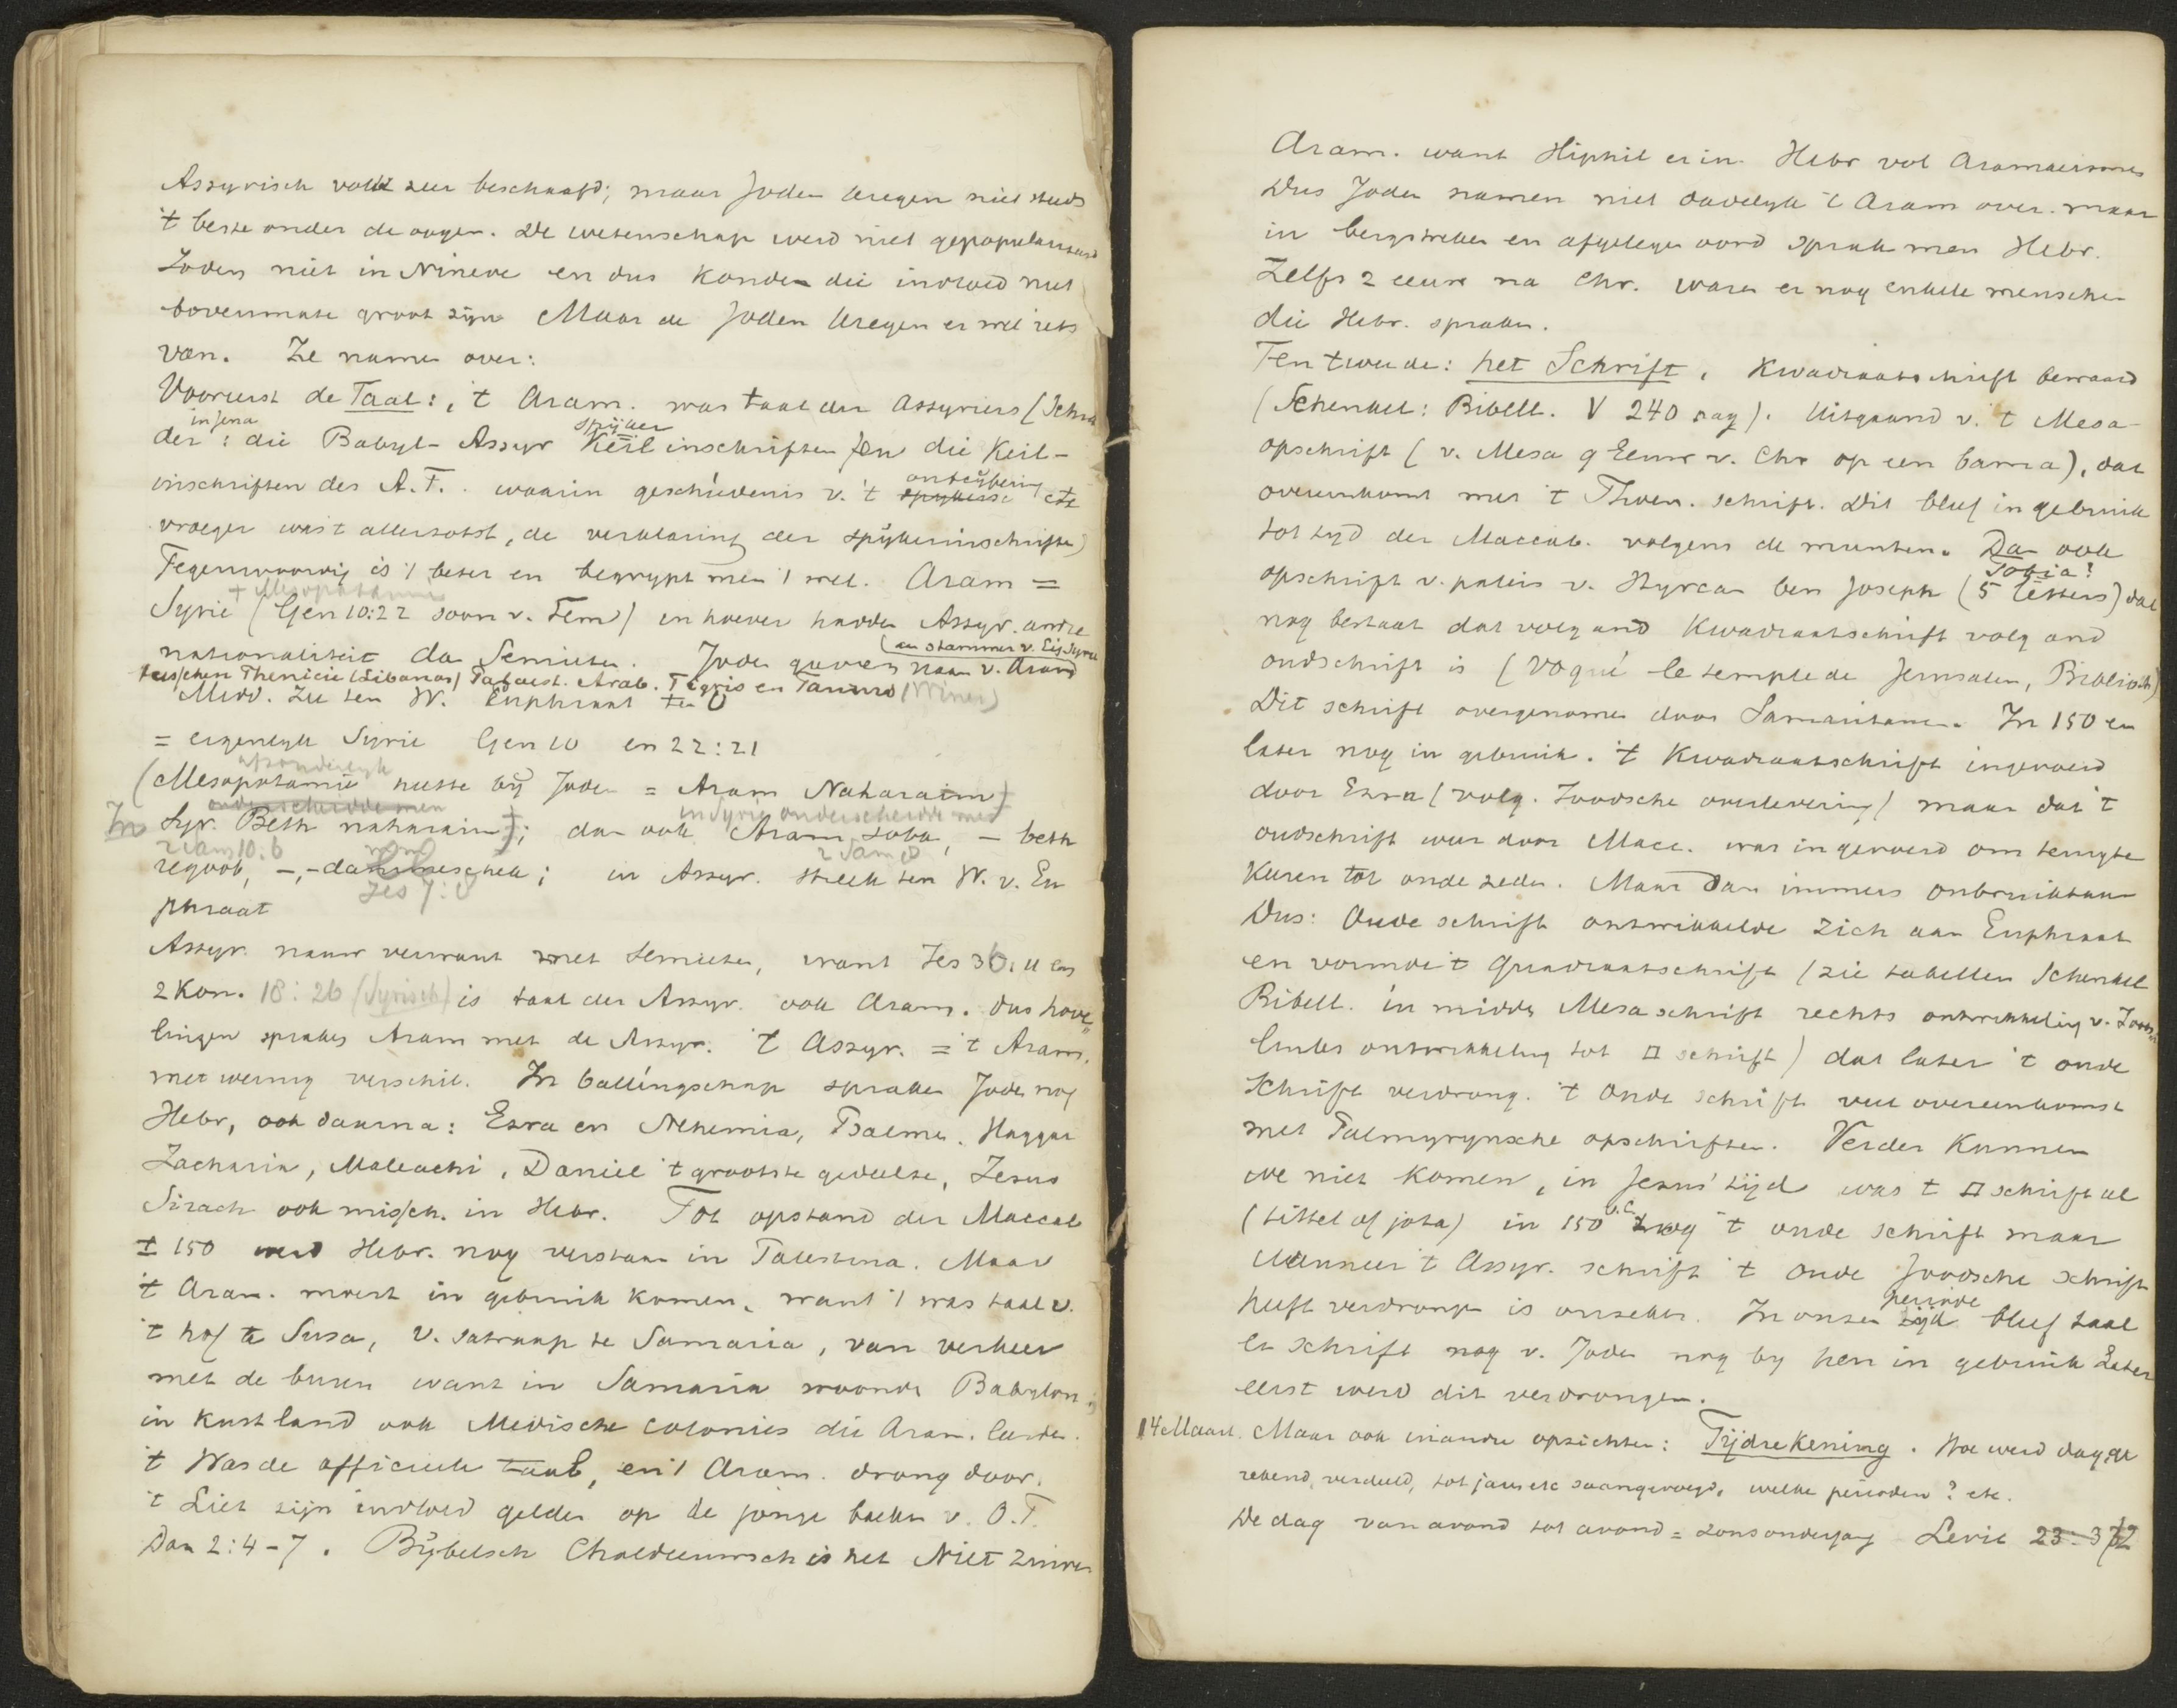 Assyrisch volk zeer beschaafd; maar Joden kregen niet steeds
't beste onder de oogen. De wetenschap werd niet gepopulariseerd
Joden niet in Nineve en dus konden die invloed niet
bovenmate groot zijn Maar de Joden kregen er wel iets
van. Ze namen over:
Vooreerst de Taal: 't Aram. was taal der Assyriers (Schra
in Jena
der: die Babyl-Assyr Keilinschriften en die Keil-
spijker
inschriften des A.T. waarin geschiedenis v. 't ontcijfering etc
vroeger was 't allerzotst, de verklaring der spijkerinschriften)
Tegenwoordig is 't beter en begrypt men 't wel. Aram =
+ Mesopotamie
Syrie (Gen 10:22 zoon v. Sem) in hoever hadden Assyr. andre
nationaliteit dan Semieten. Joden gaven naam v. Aram
aan stammen v. Eig. Syrie
tusschen Phenicie (Libanon) Palaest. Arab. Tigris en Taurus (Winer)
Midd. Zee ten W. Euphraat ten O
= eigenlyk Syrie Gen 10 en 22:21
afzonderlyk
(Mesopotamie heette bij Joden = Aram Naharaim)
onderscheidde men
In Syr. Beth naharain); dan ook Aram Soba, — beth
in Syrie onderscheidde men
2 Sam 10:6 2 Sam 8
regoob, -,- dammeschek; in Assyr. streek ten W. v. Eu
Jes 7:8
phraat
Assyr. nauw verwant met Semieten, want Jes 36:11 en
2 Kon. 18:26 (Syrisch) is taal der Assyr. ook Aram. dus hove
lingen spraken Aram met de Assyr. 't Assyr. = 't Aram,
met weinig verschil. In ballingschap spraken Joden nog
Hebr, ook daarna: Esra en Nehemia, Psalmen, Haggai
Zacharia, Maleachi, Daniel 't grootste gedeelte, Jezus
Sirach ook missch. in Hebr. Tot opstand der Maccab
± 150 werd Hebr. nog verstaan in Palestina. Maar
't Aram. moest in gebruik komen, want 't was taal v.
't hof te Susa, v. satraap te Samaria, van verkeer
met de buren want in Samaria woonde Babylon;
in Kustland ook Medische colonies die Aram. leerden.
't Was de officieele taal, en 't Aram. drong door.
't Liet zijn invloed gelden op de jonge boeken v. O.T.
Dan 2:4-7. Bijbelsch Chaldeeuwsch is het Niet zuiver
Aram. want Hiphil er in. Hebr vol Aramaeismes
Dus Joden namen niet dadelyk 't Aram over. maar
in bergstreken en afgelegen oord sprak men Hebr.
Zelfs 2 eeuw na Chr. waren er nog enkele menschen
die Hebr. spraken.
Ten tweede: het Schrift, Kwadraatschrift bewaard
(Schenkel: Bibell. V 240 pag). Uitgaand v. 't Mesa-
opschrift (v. Mesa 9 Eeuw v. Chr op een bama), dat
overeenkomt met 't Phoen. schrift. Dit bleef in gebruik
tot tyd der Maccab. volgens de munten. Dan ook
Tobia?
opschrift v. paleis v. Hyrcan ben Joseph (5 letters) dat
nog bestaat dat volg and Kwadraatschrift volg and
oudschrift is (Voqué le temple de Jerusalem, Biblioth)
Dit schrift overgenomen door Samaritanen. In 150 en
later nog in gebruik. 't Kwadraatschrift ingevoerd
door Ezra (volg. Joodsche overlevering) maar dat 't
oudschrift weer door Macc. was ingevoerd om terugte
Keeren tot oude zeden. Maar dan immers onbruikbaar
Dus: Oude schrift ontwikkelde zich aan Euphraat
en vormde 't Quadraatschrift (zie tabellen Schenkel
Bibell. in midden Mesa schrift rechts ontwikkeling v. Joodsch
links ontwikkeling tot □ schrift) dat later 't oude
Schrift verdrong. 't Oude schrift veel overeenkomst
met Palmyrynsche opschriften. Verder kunnen
we niet komen, in Jezus' tijd was 't □ schrift al
(tittel of jota) in 150 v.C. nog 't oude schrift maar
Wanneer 't Assyr. schrift 't oude Joodsche schrift
heeft verdrongen is onzeker. In onze periode bleef taal
en schrift nog v. Joden nog by hen in gebruik Later
eerst werd dit verdrongen.
14 Maart. Maar ook in andre opzichten: Tijdrekening. Hoe werd dag ge
rekend, verdeeld, tot jaren etc saamgevoegd, welke perioden? etc.
De dag van avond tot avond = zonsondergang Levit 23:32